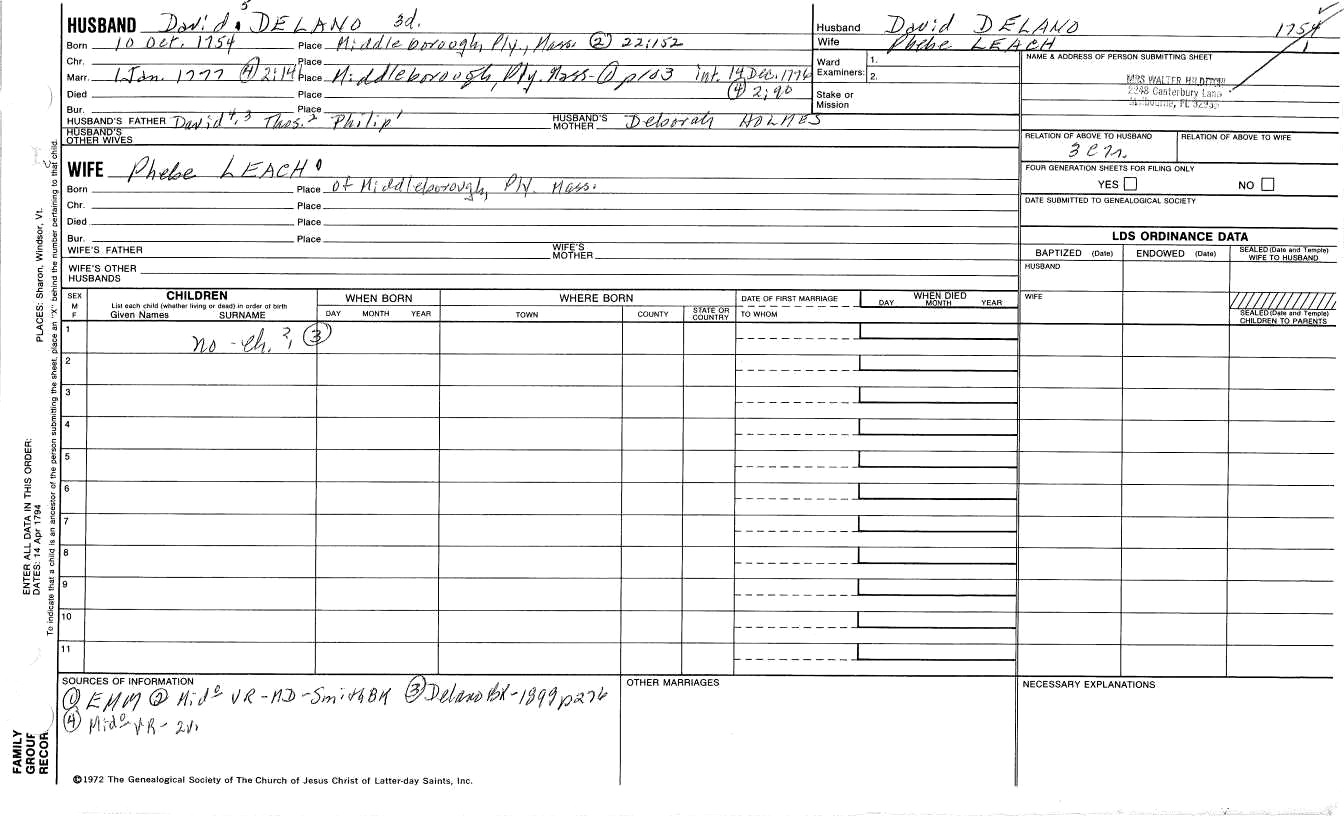 HUSBAND David 5 DELANO 3d.
Born 10 Oct. 1754 Place Middleborough, Ply., Mass. ② 22:152
Chr. Place
Marr. 1 Jan. 1777 ④ 2:141 Place Middleborough, Ply. Mass-① p103 int. 14 Dec. 1776
④ 2:90
Died Place
Bur. Place
HUSBAND'S FATHER David 4,3 Thos. 2 Philip 1 HUSBAND'S MOTHER Deborah HOLMES
HUSBAND'S OTHER WIVES
WIFE Phebe LEACH
Born Place of Middleborough, Ply. Mass.
Chr. Place
Died Place
Bur. Place
WIFE'S FATHER WIFE'S MOTHER
WIFE'S OTHER HUSBANDS
Husband David DELANO 1754
Wife Phebe LEACH 1
Ward Examiners: 1.
2.
Stake or Mission
NAME & ADDRESS OF PERSON SUBMITTING SHEET
MRS WALTER
Canterbury Lane
RELATION OF ABOVE TO HUSBAND RELATION OF ABOVE TO WIFE
FOUR GENERATION SHEETS FOR FILING ONLY
YES NO
DATE SUBMITTED TO GENEALOGICAL SOCIETY
LDS ORDINANCE DATA
BAPTIZED (Date) ENDOWED (Date) SEALED (Date and Temple) WIFE TO HUSBAND
HUSBAND
WIFE
SEALED (Date and Temple) CHILDREN TO PARENTS
SEX M F
CHILDREN
List each child (whether living or dead) in order of birth
Given Names SURNAME
WHEN BORN
DAY MONTH YEAR
WHERE BORN
TOWN COUNTY STATE OR COUNTRY
DATE OF FIRST MARRIAGE
TO WHOM
WHEN DIED
DAY MONTH YEAR
1 no - ch. ?, ③
2
3
4
5
6
7
8
9
10
11
SOURCES OF INFORMATION
① EMM ② Mido VR-MD-Smith BK ③ Delano BK-1899 p276
④ Mido VR-2v.
OTHER MARRIAGES
NECESSARY EXPLANATIONS
©1972 The Genealogical Society of The Church of Jesus Christ of Latter-day Saints, Inc.
FAMILY GROUP RECOR
ENTER ALL DATA IN THIS ORDER:
DATES: 14 Apr 1794
PLACES: Sharon, Windsor, Vt.
To indicate that a child is an ancestor of the person submitting the sheet, place an "X" behind the number pertaining to that child.